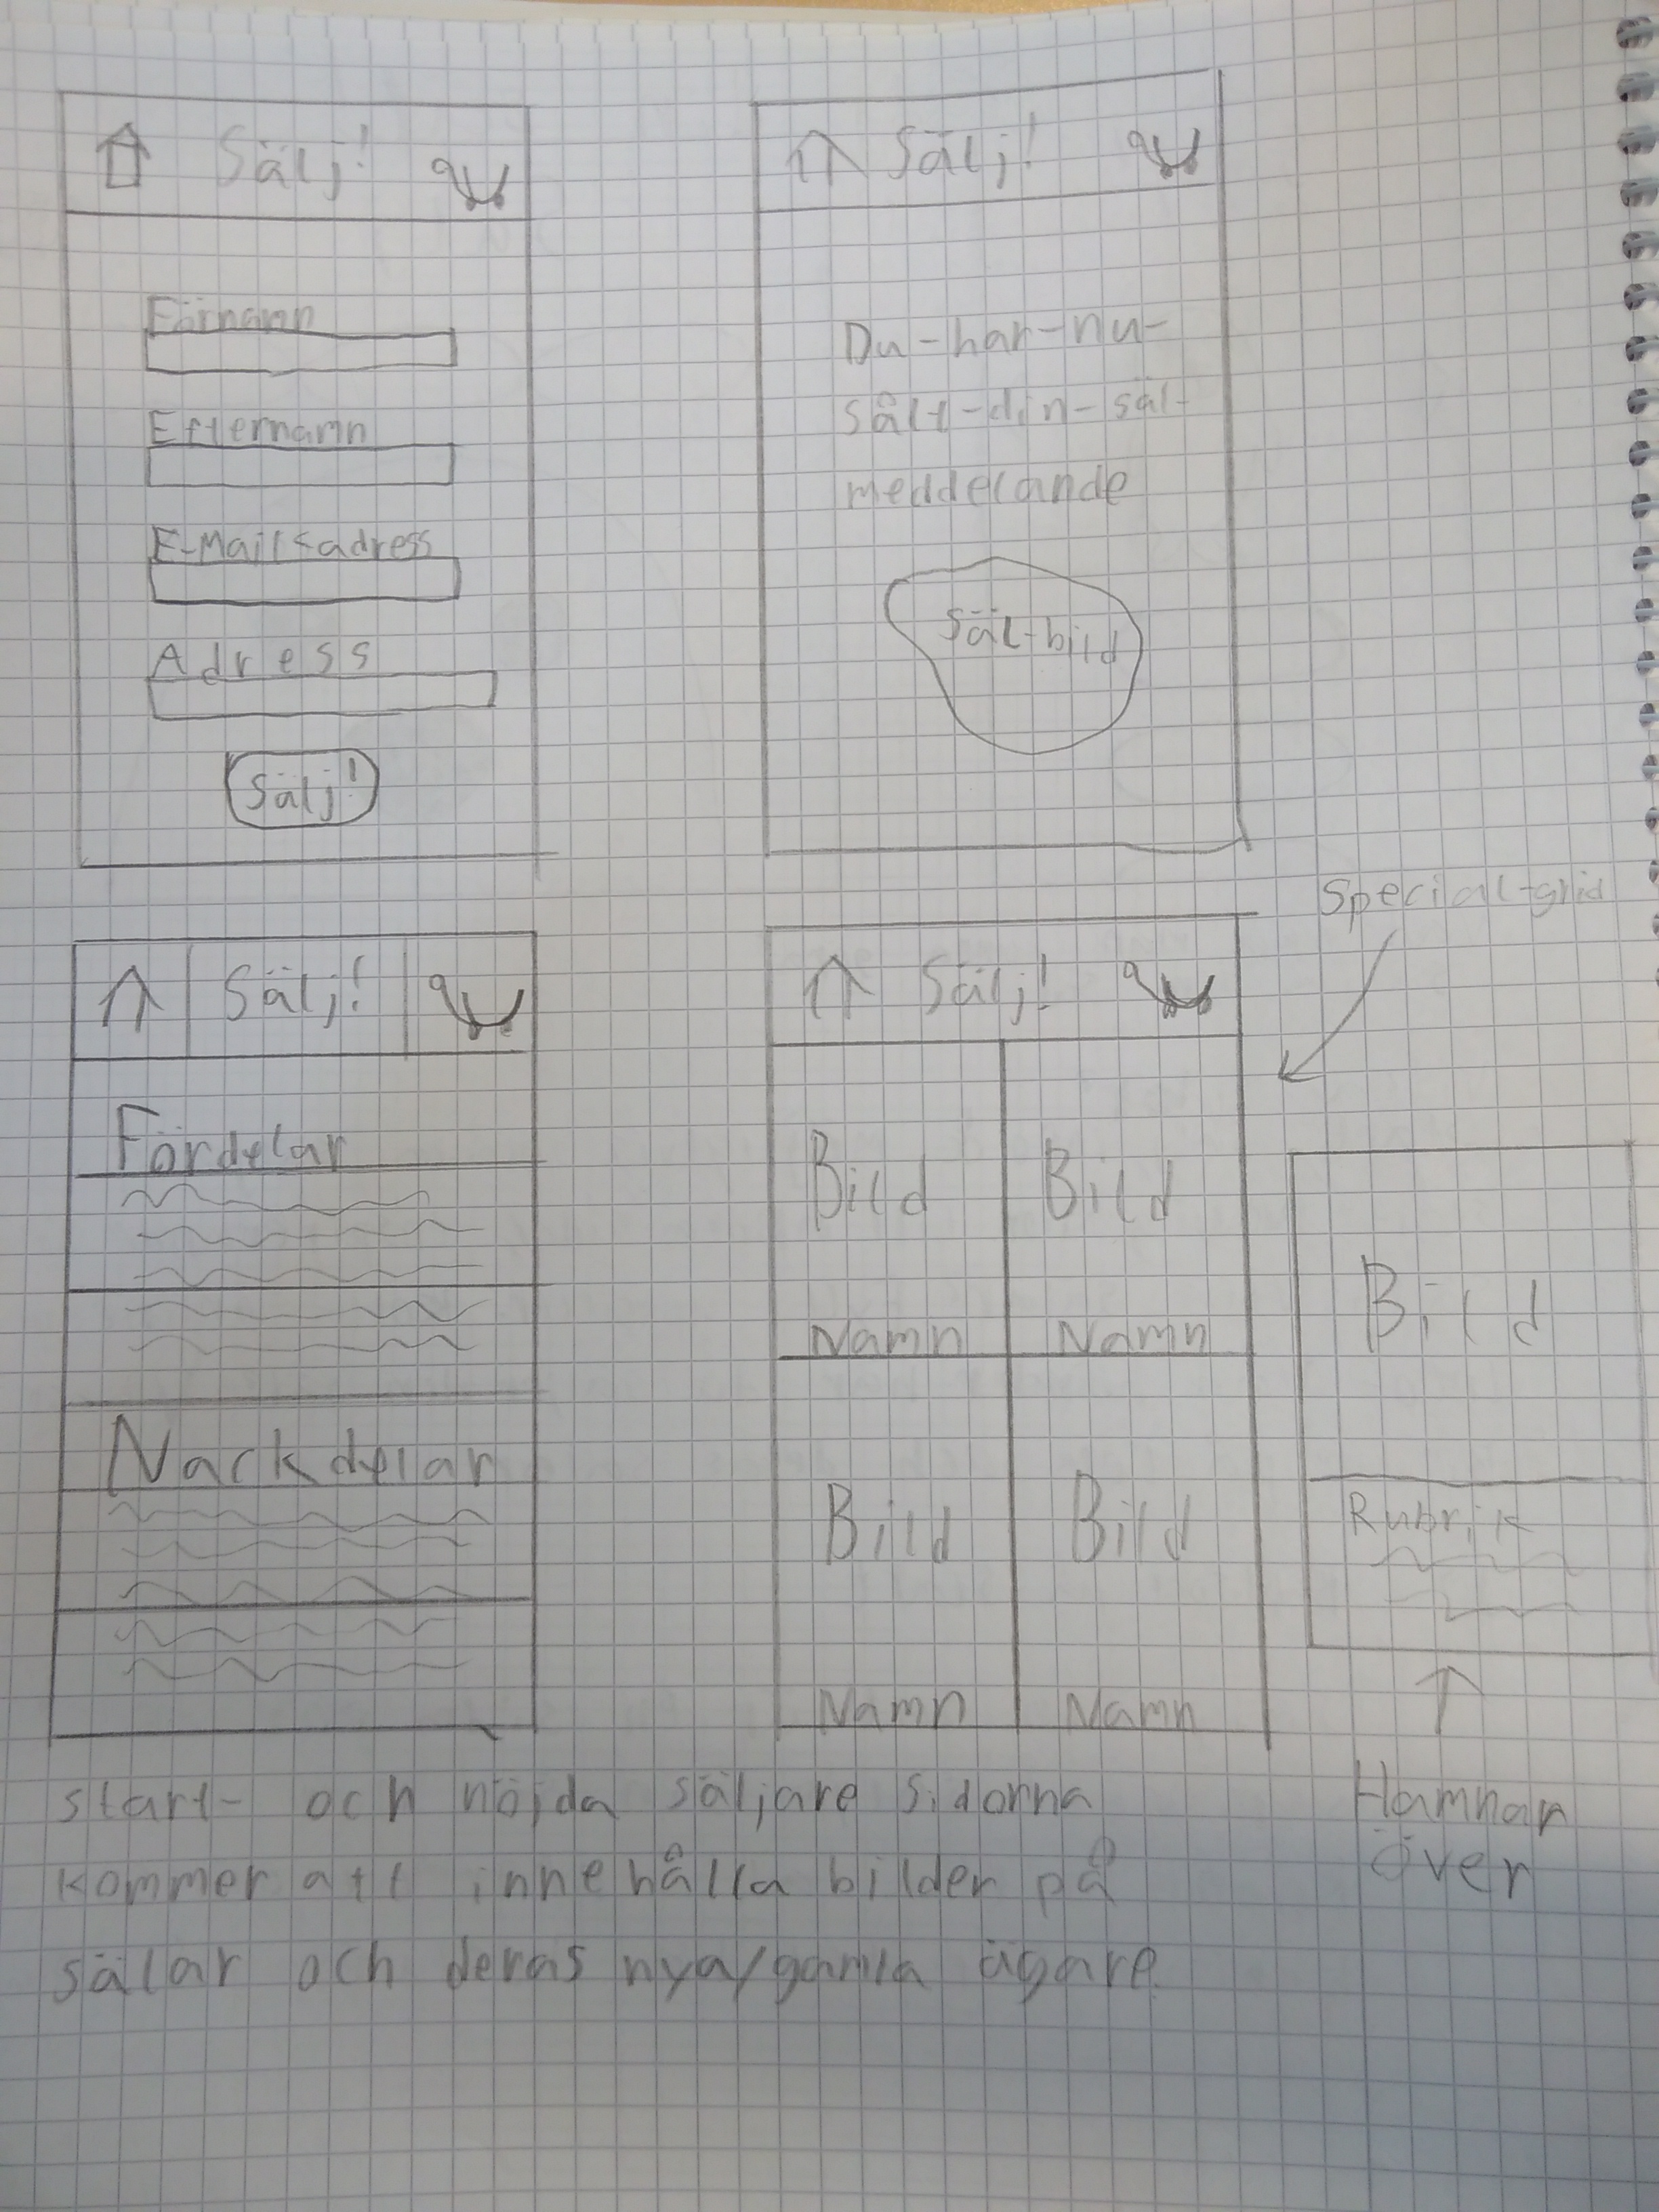 Sälj!
Förnamn
Efternamn
E-Mailsadress
Adress
Sälj!
Sälj!
Du-har-nu-
sålt-din-säl-
meddelande
Säl-bild
Sälj!
Fördelar
Nackdelar
Special-grid
Sälj!
Bild Bild
Namn Namn
Bild Bild
Namn Namn
Bild
Rubrik
Hamnar
över
start- och nöjda säljare sidorna
kommer att innehålla bilder på
sälar och deras nya/gamla ägare.